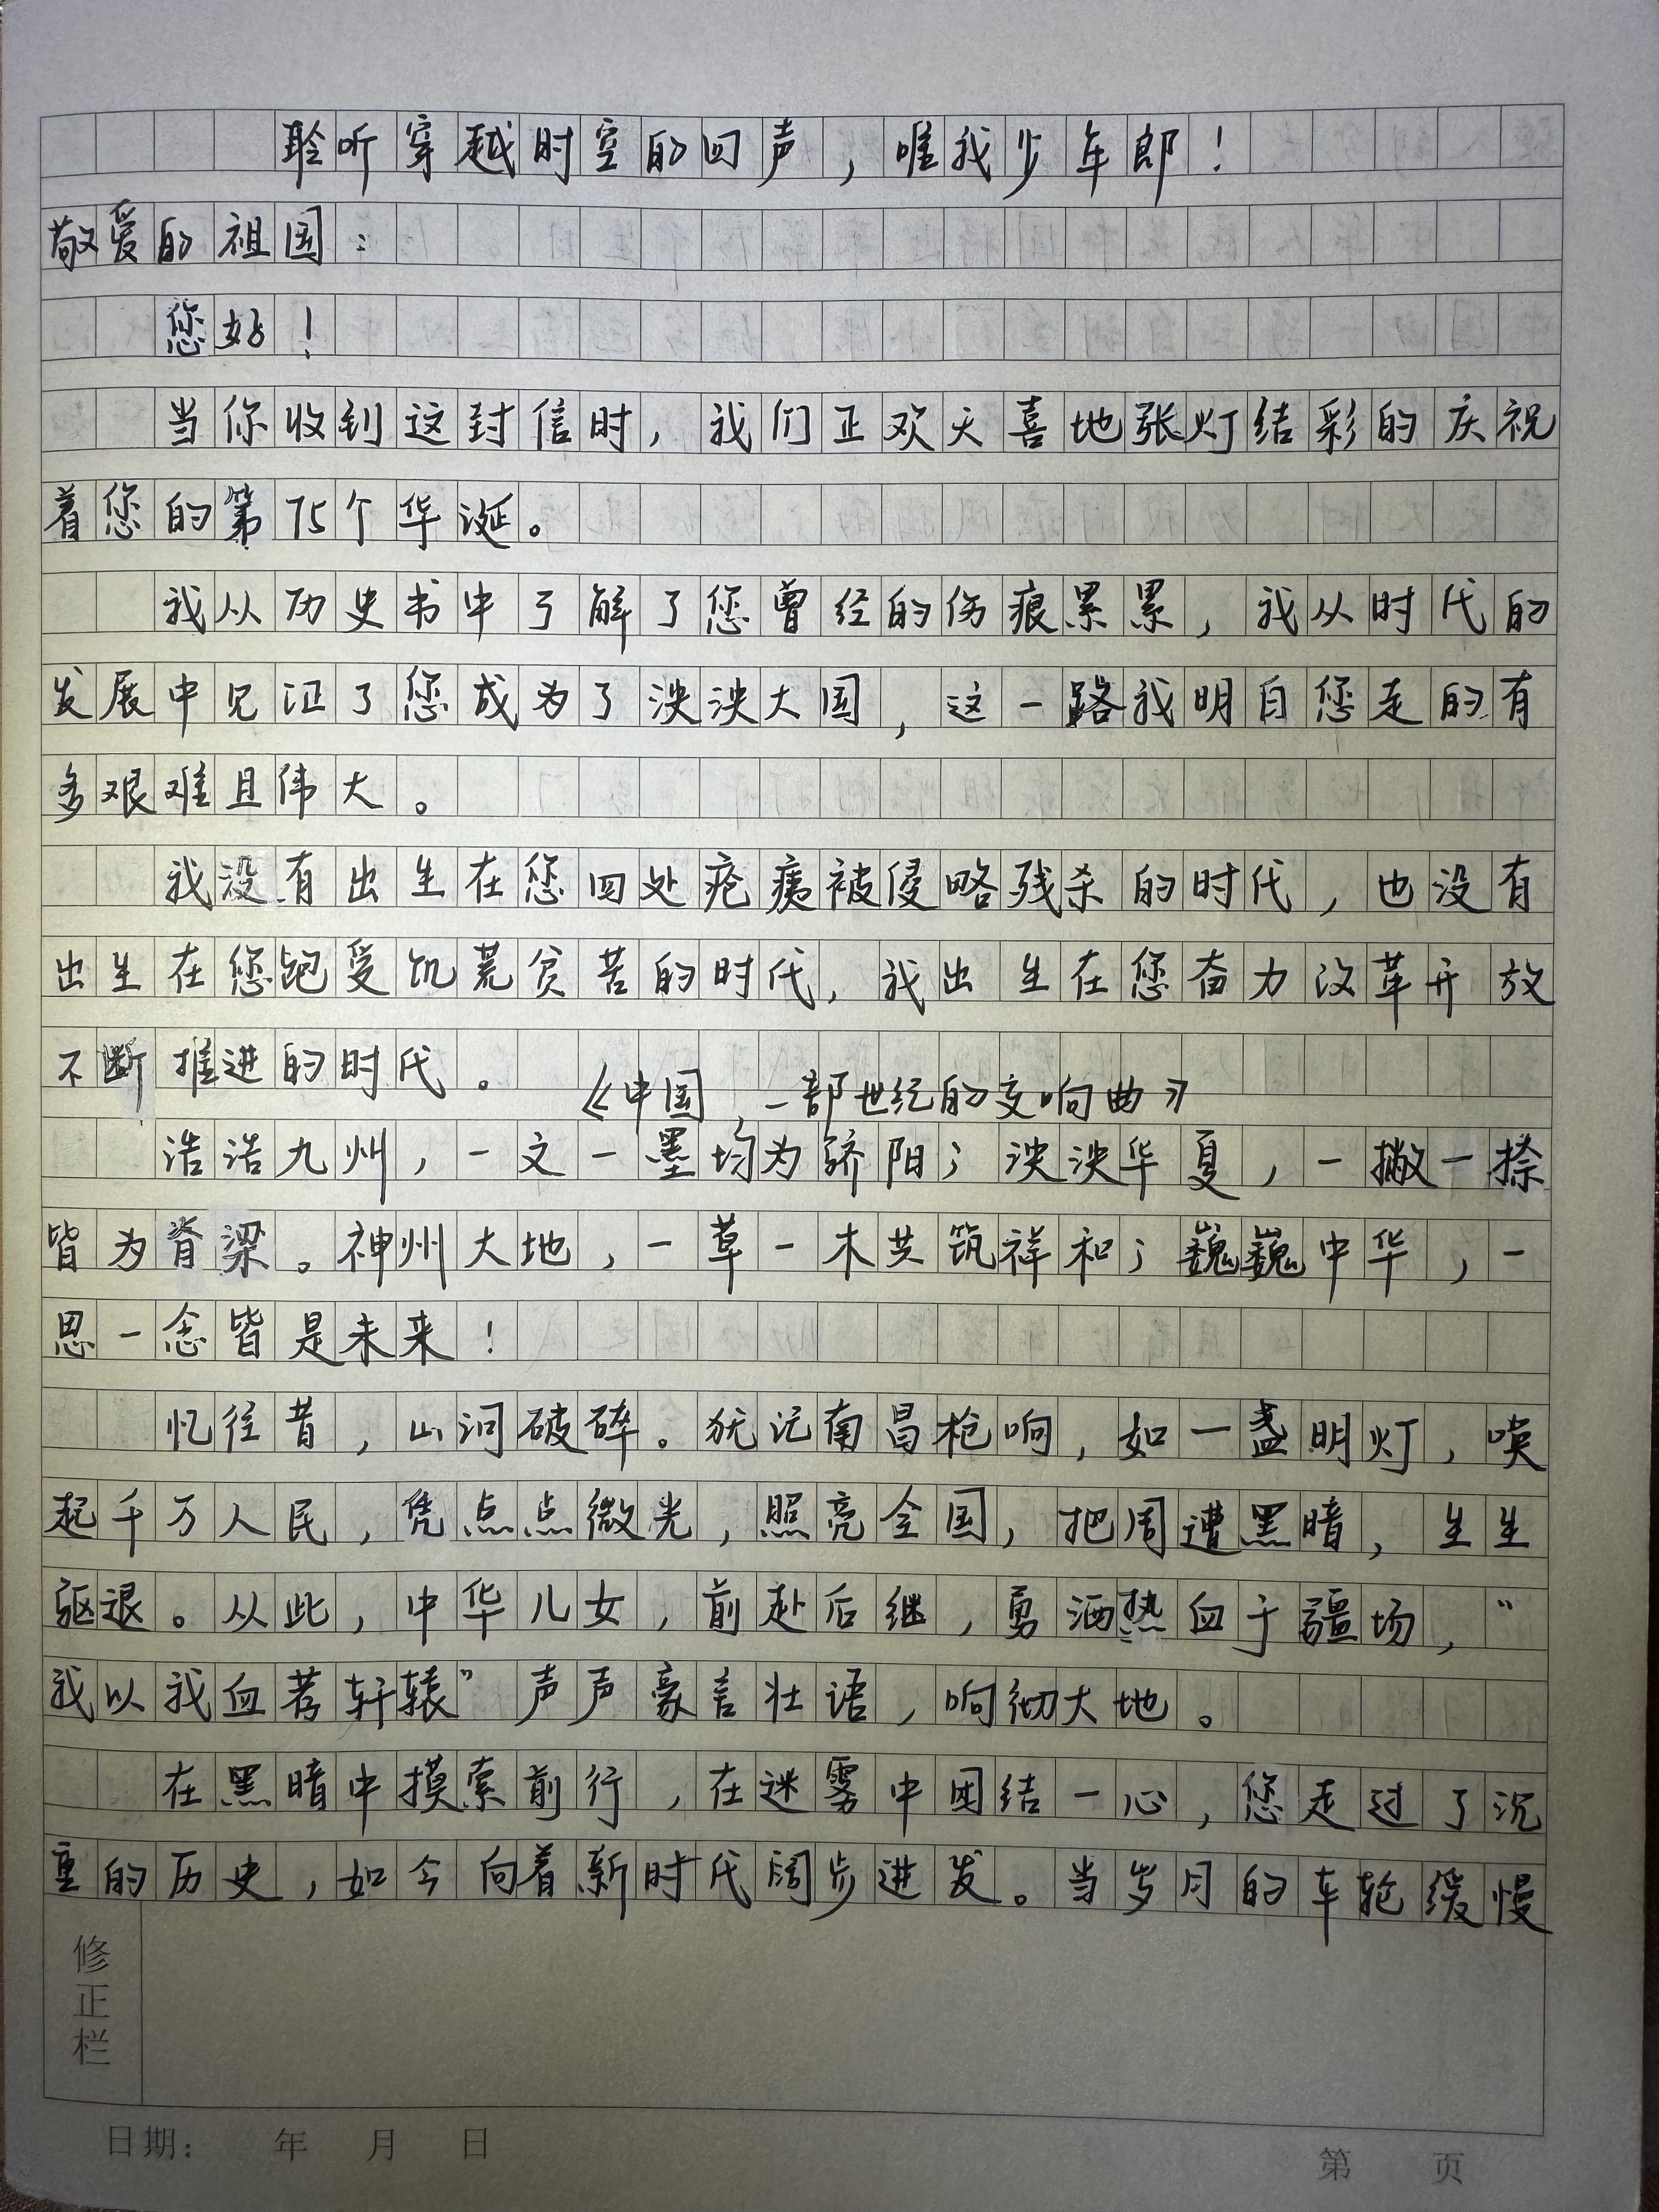 聆听穿越时空的回声，唯我少年郎！
敬爱的祖国：
您好！
当你收到这封信时，我们正欢天喜地张灯结彩的庆祝
着您的第75个华诞。
我从历史书中了解了您曾经的伤痕累累，我从时代的
发展中见证了您成为了泱泱大国，这一路我明白您走的有
多艰难且伟大。
我没有出生在您四处疮痍被侵略残杀的时代，也没有
出生在您饱受饥荒贫苦的时代，我出生在您奋力改革开放
不断推进的时代。
《中国，一部世纪的交响曲》
浩浩九州，一文一墨均为骄阳；泱泱华夏，一撇一捺
皆为脊梁。神州大地，一草一木共筑祥和；巍巍中华，一
思一念皆是未来！
忆往昔，山河破碎。犹记南昌枪响，如一盏明灯，唤
起千万人民，凭点点微光，照亮全国，把周遭黑暗，生生
驱退。从此，中华儿女，前赴后继，勇洒热血于疆场，“
我以我血荐轩辕”声声豪言壮语，响彻大地。
在黑暗中摸索前行，在迷雾中团结一心，您走过了沉
重的历史，如今向着新时代阔步进发。当岁月的车轮缓慢
修正栏
日期： 年 月 日
第 页